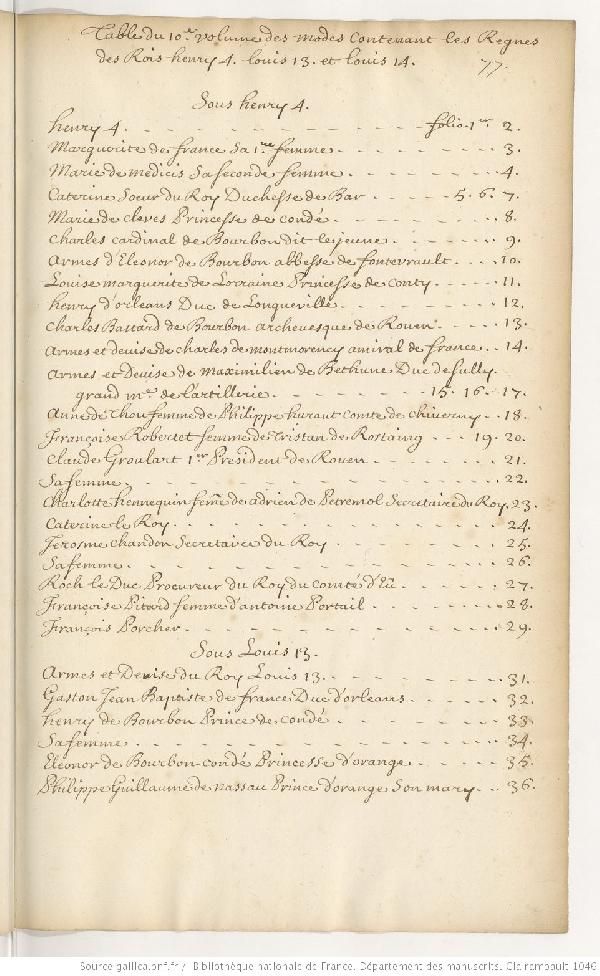 Table du 10.e volume des modes Contenant les Regnes
des Rois henry 4. louis 13. et louis 14.
77.
Sous henry 4.
henry 4. - - - - - - - - - - folio. 1er 2.
Marguerite de france sa 1.re femme - - - - - - 3.
Marie de medicis sa seconde femme - - - - - - 4.
Caterine Soeur du Roy Duchesse de Bar - - - - 5. 6. 7.
Marie de cleves Princesse de condé - - - - - - 8.
Charles cardinal de Bourbon dit le jeune - - - - - 9.
Armes d'Eleonor de Bourbon abbesse de fontevrault - - - 10.
Louise marguerite de Lorraine Princesse de Conty - - - - 11.
henry d'orleans Duc de Longueville - - - - - - 12.
Charles Bastard de Bourbon archevesque de Rouen - - - - 13.
Armes et devise de charles de montmorency amiral de france - - 14.
Armes et Devise de maximilien de Bethune Duc de sully
grand m.e de l'artillerie - - - - - 15. 16. 17.
Anne de Thou femme de Philippe huraut Comte de Chiverny - - 18.
Françoise Robertet femme de Tristan de Rostaing - - - 19. 20.
Claude Groulart 1.er President de Rouen - - - - - - 21.
Sa femme - - - - - - - - - - 22.
Charlotte hennequin feme de adrien de Petremol Secretaire du Roy. 23.
Caterine le Roy - - - - - - - - - 24.
Jerosme Chandon Secretaire du Roy - - - - - - 25.
Sa femme - - - - - - - - - - 26.
Roch le Duc Procureur du Roy du comté d'Eu - - - - 27.
Françoise Pitard femme d'antoine Portail - - - - - 28.
François Porcher - - - - - - - - - 29.
Sous Louis 13.
Armes et Devise du Roy Louis 13. - - - - - - 31.
Gaston Jean Baptiste de france Duc d'orleans - - - - 32.
henry de Bourbon Prince de condé - - - - - - 33
Sa femme - - - - - - - - - - 34.
Eleonor de Bourbon-condé Princesse d'orange - - - - 35.
Philippe Guillaume de nassau Prince d'orange Son mary - - 36.
Source gallica.bnf.fr / Bibliothèque nationale de France. Département des manuscrits. Clairambault 1046